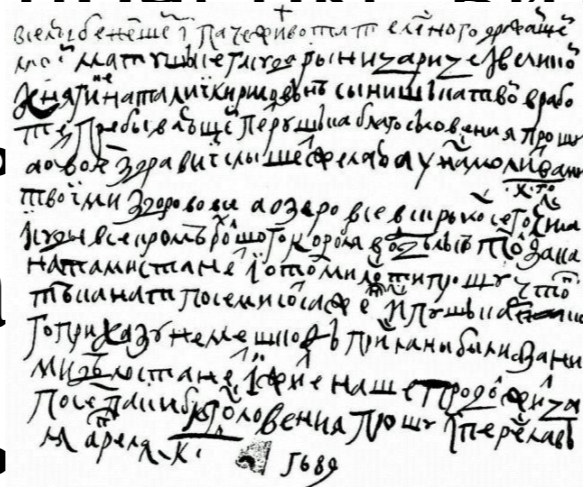 вселюбезнѣйшей i паче живота телесного дражайшей
моей матушъке гасударыни царице i великой
княгине наталиi кириловнѣ сынишъка твой в рабо
те пребывающей петрушъка благословения прошу
а о твоем здравиi слышеть желаю а у нас молитвами
твоiми здорово все а озеро все вскрылось сего к го числа
i суды все кромѣ болшого корабля в отдѣлке толко за ка
натами станет i о том милости прошу чтоб
тѣ канаты по семисот сажен iс пушъкарского
приказу не мешкоѳ присланы были а за ни
ми дѣло станет i житье наше продолжитца
по сем паки благословения прошу iс переславля
апреля к
1689